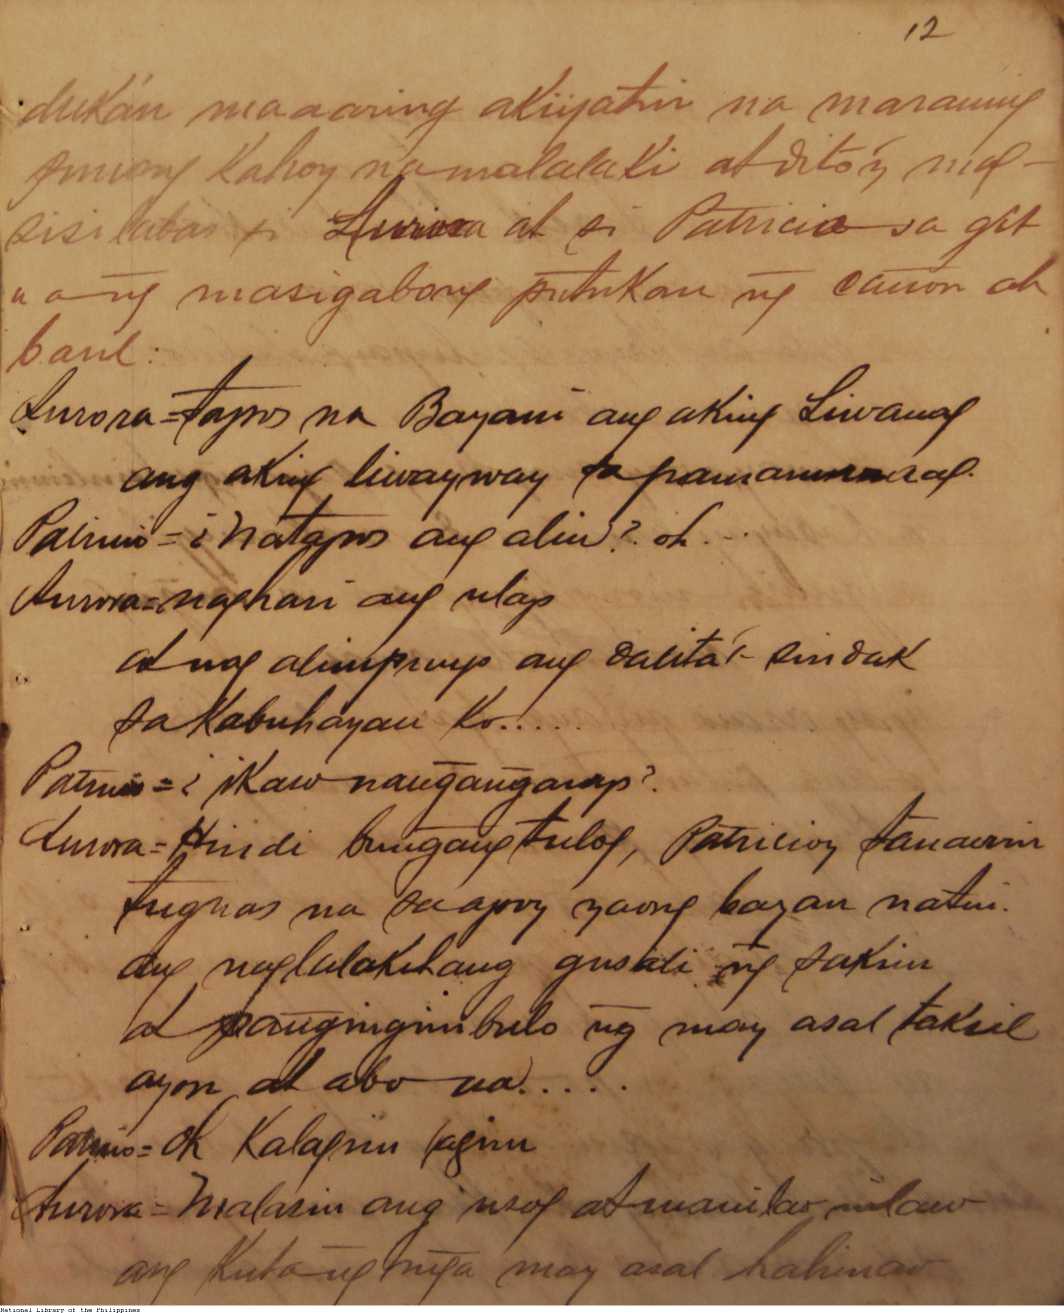 12
dukán maaaring akiyatin na maraming
punong Kahoy na malalaki at dito'y mag-
sisilabas si Aurora at si Patricio sa git
na ng masigabong putukan ng cañon at
baril:
Aurora = tapos na Bayani ang aking Liwanag
ang aking liwayway sa
Patricio = ¿Natapos ang alin? oh....
Aurora = naghari ang ulap
at nag alimpuyo ang dalita't sindak
sa Kabuhayan Ko.....
Patricio = ¿ikaw nañgañgarap?
Aurora = Hindi buñgang tulog, Patricioy tanawin
tugnas na sa apoy yaong bayan natin.
ang naglalakihang gusali ñg sakim
at pañginginbulo ñg may asal taksil
ayon at abo na.....
Patricio = Oh Kalagim lagim
Aurora = Malasin ang usok at manilaw nilaw
ang Kuta ng mga may asal halimaw
National Library of the Philippines